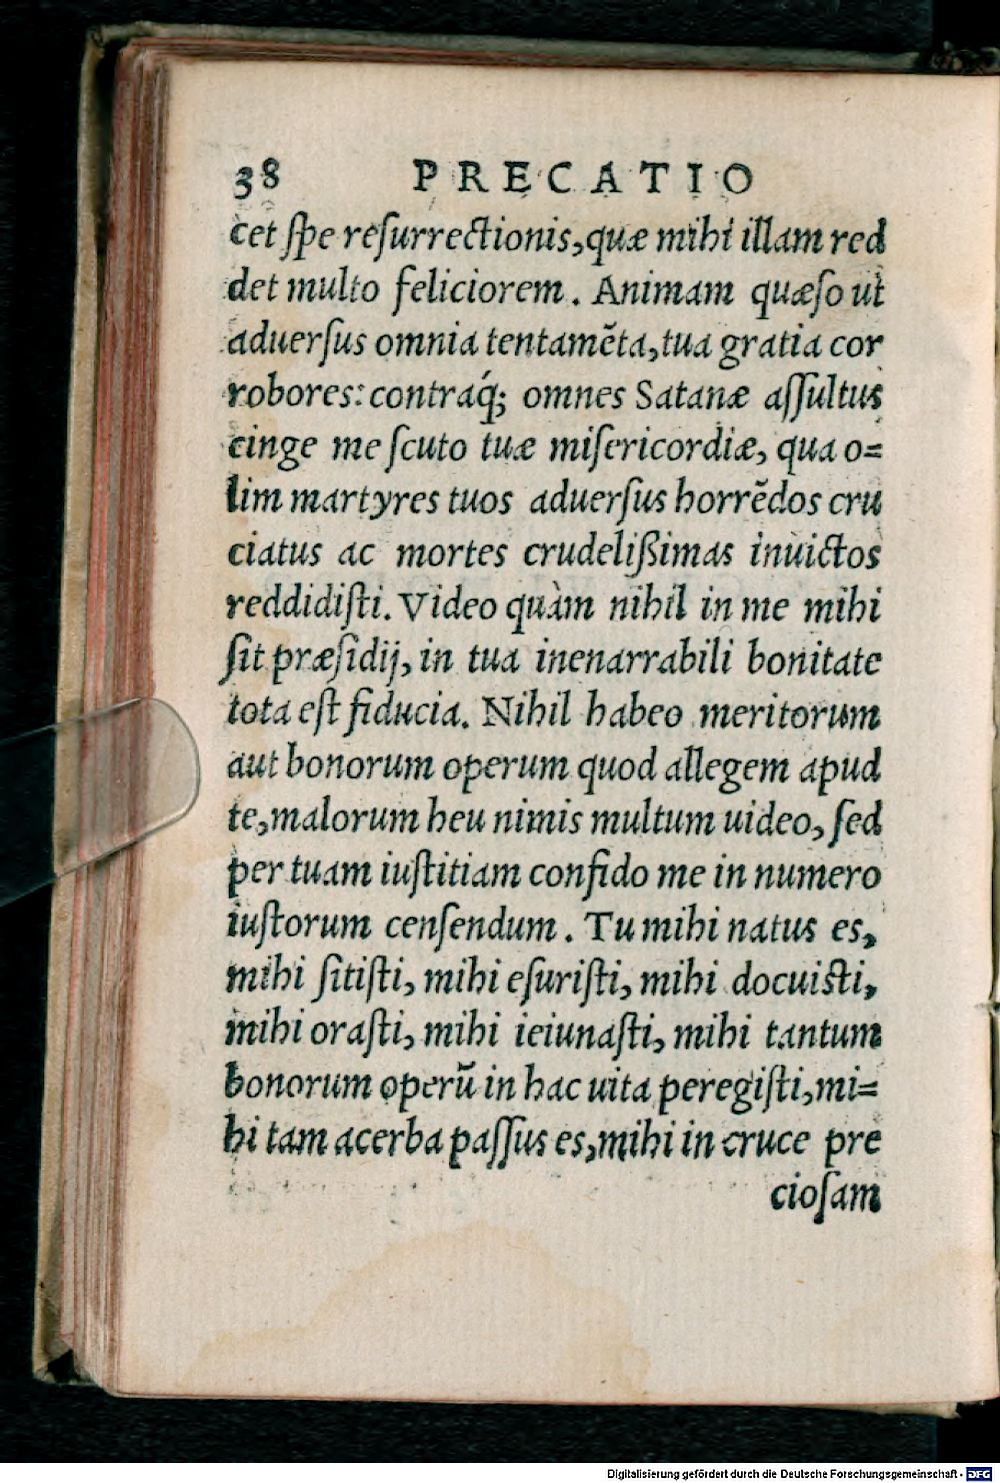 38 PRECATIO
cet ſpe reſurrectionis, quæ mihi illam red
det multo feliciorem. Animam quæſo ut
aduerſus omnia tentamẽta, tua gratia cor
robores: contraq́; omnes Satanæ aſſultus
cinge me ſcuto tuæ miſericordiæ, qua o=
lim martyres tuos aduerſus horrẽdos cru
ciatus ac mortes crudelißimas inuictos
reddidiſti. Video quàm nihil in me mihi
ſit præſidij, in tua inenarrabili bonitate
tota eſt fiducia. Nihil habeo meritorum
aut bonorum operum quod allegem apud
te, malorum heu nimis multum uideo, ſed
per tuam iuſtitiam confido me in numero
iuſtorum cenſendum. Tu mihi natus es,
mihi ſitiſti, mihi eſuriſti, mihi docuiſti,
mihi oraſti, mihi ieiunaſti, mihi tantum
bonorum operũ in hac uita peregiſti, mi=
hi tam acerba paſſus es, mihi in cruce pre
cioſam
Digitalisierung gefördert durch die Deutsche Forschungsgemeinschaft - DFG